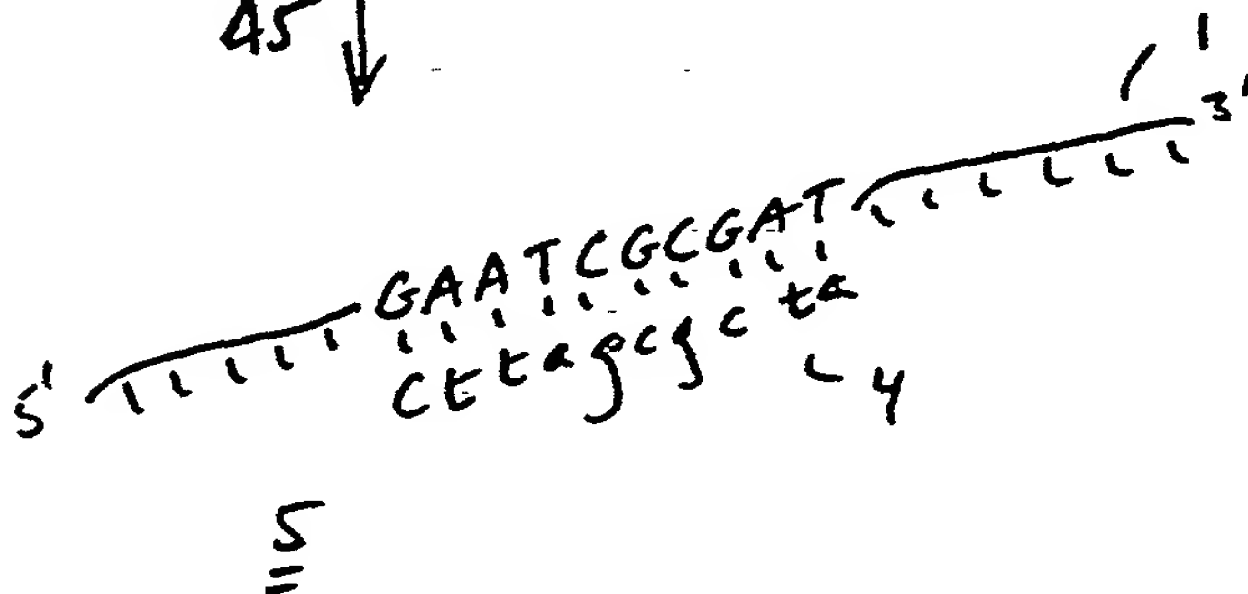 A5
1
3'
GAATCGCGAT
cttagcgcta
5'
4
5